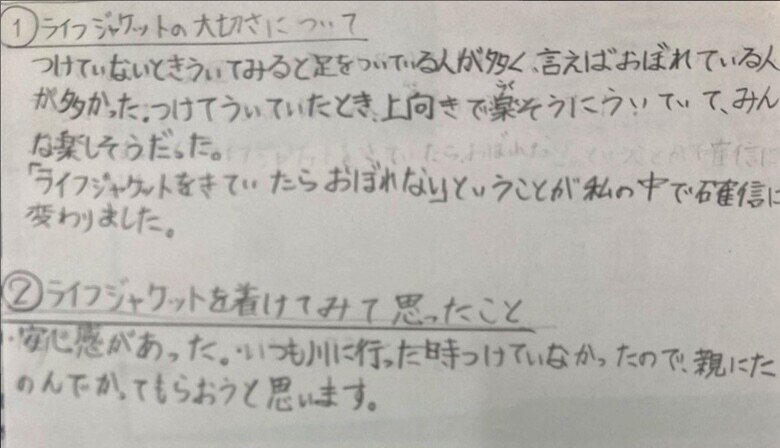 ①ライフジャケットの大切さについて
つけていないときういてみると足をついている人が多く、言えばおぼれている人
が多かった。つけてういていたとき、上向きで楽そうにういていて、みん
な楽しそうだった。
「ライフジャケットをきていたらおぼれない」ということが私の中で確信に
変わりました。
②ライフジャケットを着けてみて思ったこと
・安心感があった。・いつも川に行った時つけていなかったので、親にた
のんでかってもらおうと思います。